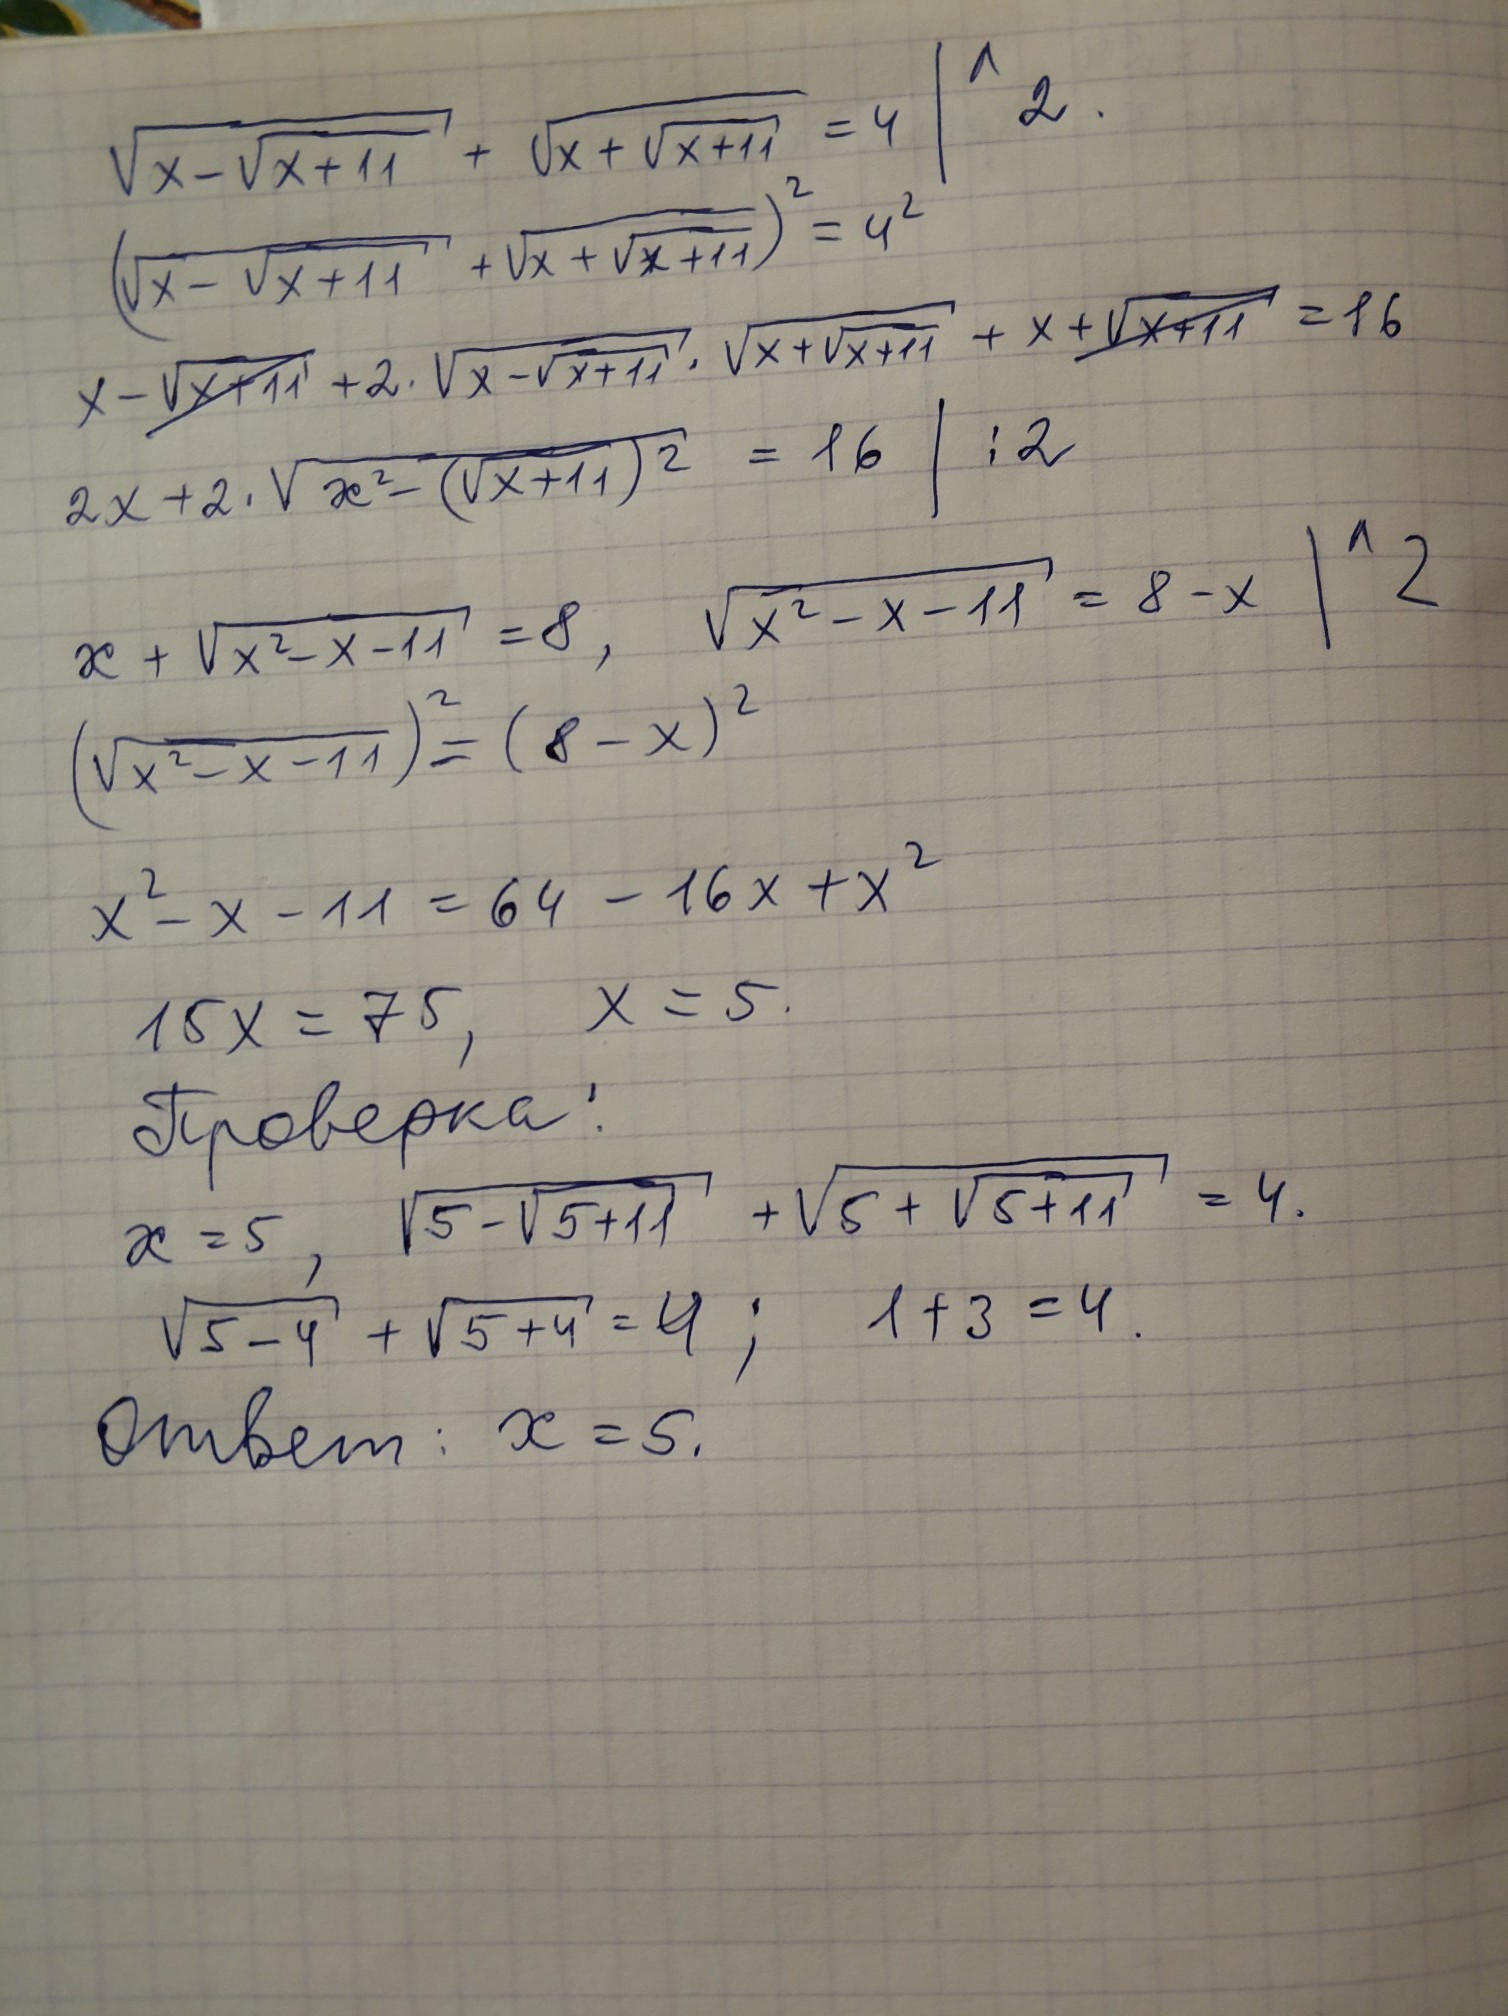 √(x-√(x+11)) + √(x+√(x+11)) = 4 | ^ 2.
(√(x-√(x+11)) + √(x+√(x+11)))² = 4²
x-√(x+11) + 2·√(x-√(x+11)) · √(x+√(x+11)) + x+√(x+11) = 16
2x+2·√(x²-(√(x+11))²) = 16 | :2
x+√(x²-x-11) = 8, √(x²-x-11) = 8-x | ^ 2
(√(x²-x-11))² = (8-x)²
x²-x-11 = 64-16x+x²
15x = 75, x = 5.
Проверка:
x = 5, √(5-√(5+11)) + √(5+√(5+11)) = 4.
√(5-4) + √(5+4) = 4; 1+3 = 4.
Ответ: x = 5.